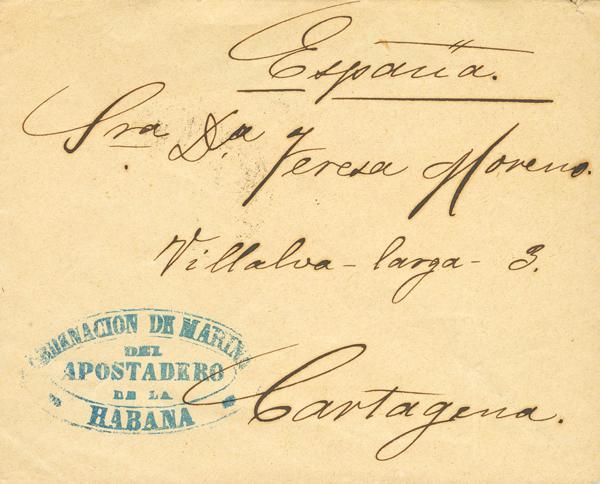 España.
Sra Da. Teresa Moreno.
Villalva - larga - 3.
Cartagena.
DE MARINA
DEL
APOSTADERO
DE LA
HABANA